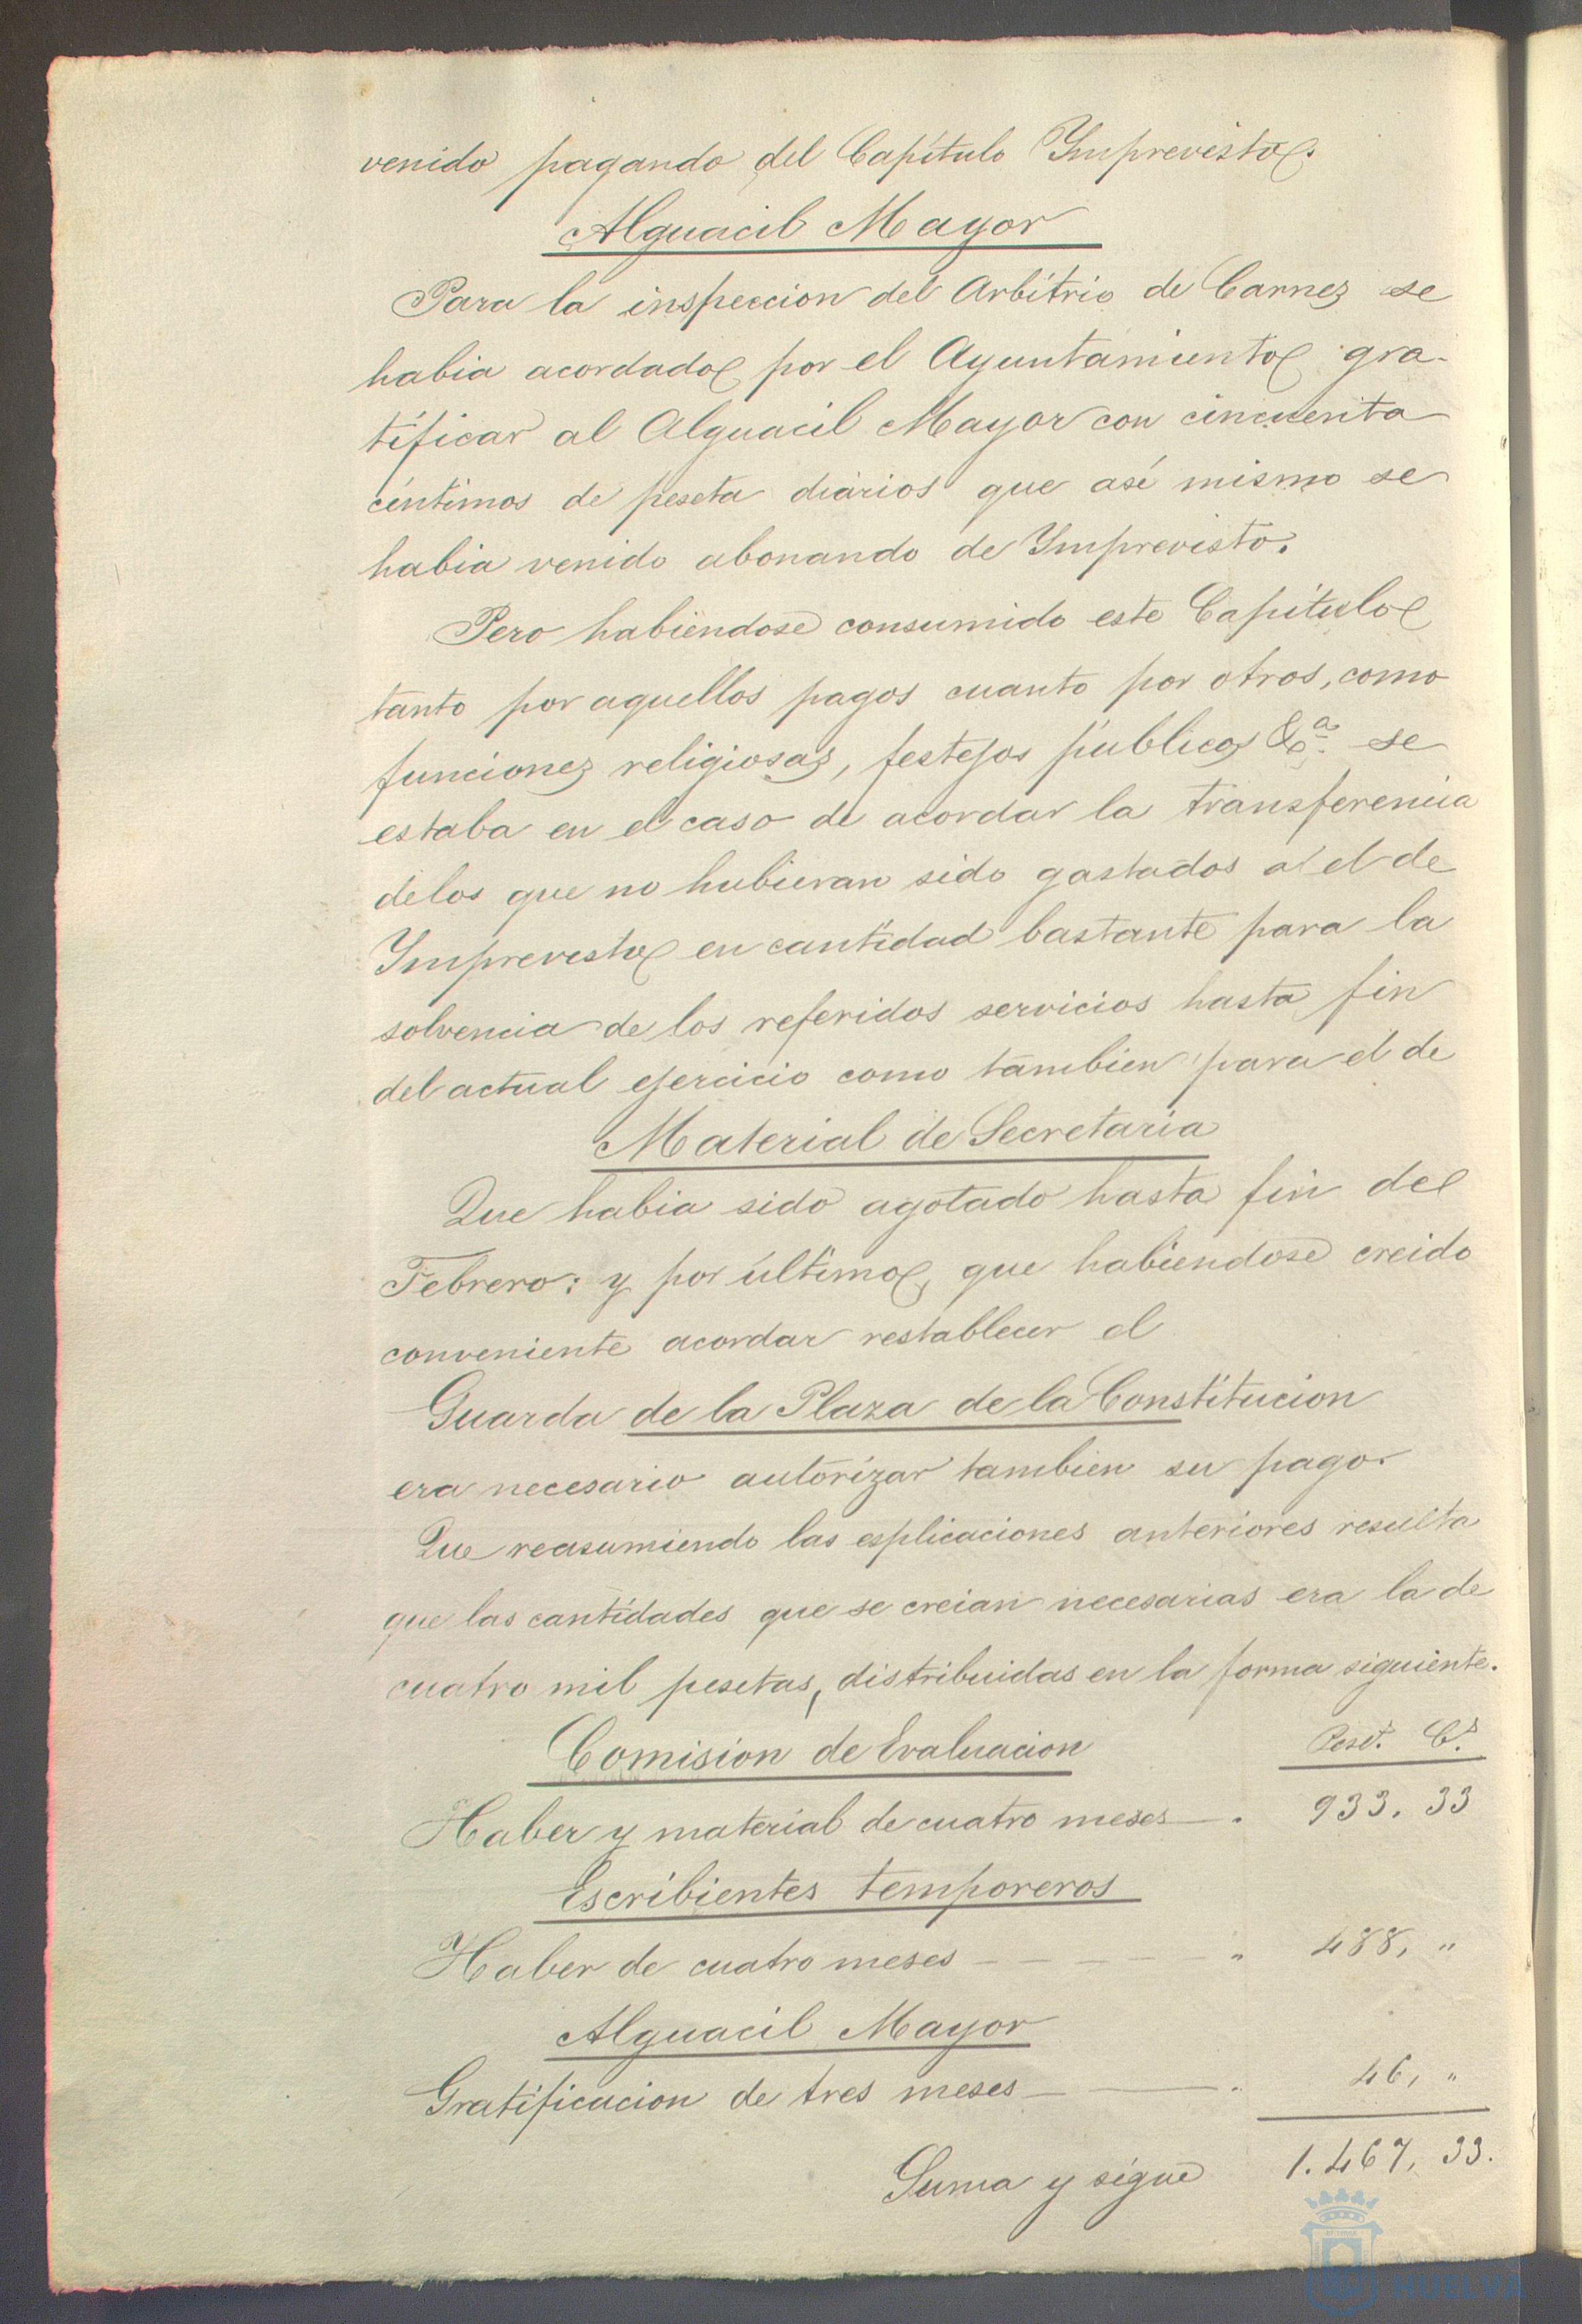 venido pagando del Capítulo Ymprevistos.
Alguacil Mayor
Para la inspeccion del Arbitrio de Carnes se
habia acordado por el Ayuntamiento gra-
tificar al Alguacil Mayor con cincuenta
céntimos de peseta diarios que asi mismo se
habia venido abonando de Ymprevisto.
Pero habiendose consumido este Capitulo
tanto por aquellos pagos cuanto por otros, como
funciones religiosas, festejos publicos &ª. se
estaba en el caso de acordar la transferencia
de los que no hubieran sido gastados al de
Ymprevistos en cantidad bastante para la
solvencia de los referidos servicios hasta fin
del actual ejercicio como tambien para el de
Material de Secretaria
Que habia sido agotado hasta fin de
Febrero: y por último, que habiendose creido
conveniente acordar restablecer el
Guarda de la Plaza de la Constitucion
era necesario autorizar tambien su pago.
Que reasumiendo las esplicaciones anteriores resulta
que las cantidades que se creian necesarias era la de
cuatro mil pesetas, distribuidas en la forma siguiente.
Comision de Evaluacion Peset. Cs.
Haber y material de cuatro meses — . 933. 33
Escribientes temporeros
Haber de cuatro meses — — — — — " 488, "
Alguacil Mayor
Gratificacion de tres meses — — " 46, "
Suma y sigue 1.467, 33.
HUELVA